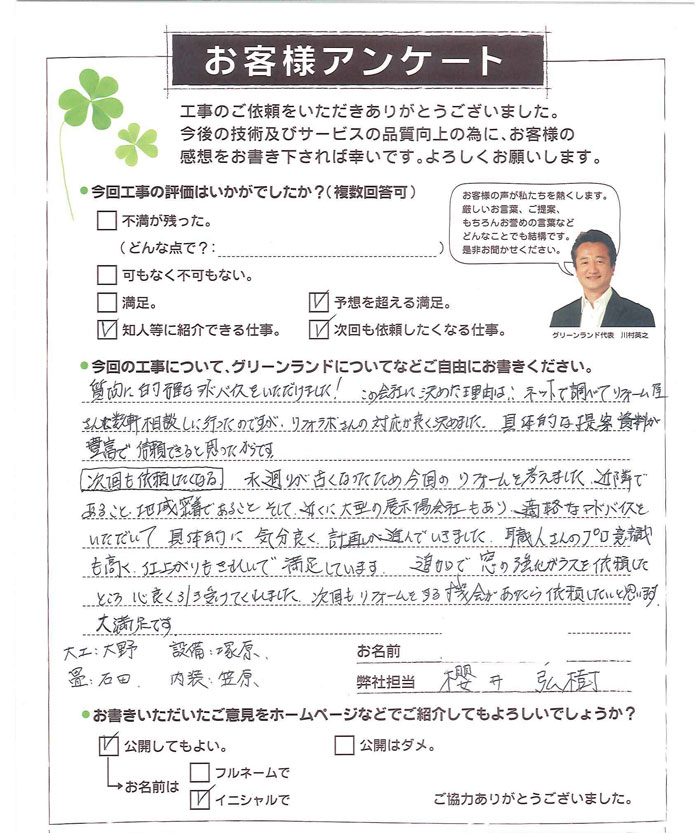 お客様アンケート
工事のご依頼をいただきありがとうございました。
今後の技術及びサービスの品質向上の為に、お客様の
感想をお書き下されば幸いです。よろしくお願いします。
●今回工事の評価はいかがでしたか?(複数回答可)
お客様の声が私たちを熱くします。
厳しいお言葉、ご提案、
もちろんお誉めの言葉など
どんなことでも結構です。
是非お聞かせください。
グリーンランド代表 川村英之
不満が残った。
(どんな点で?: )
可もなく不可もない。
満足。
予想を超える満足。
知人等に紹介できる仕事。
次回も依頼したくなる仕事。
●今回の工事について、グリーンランドについてなどご自由にお書きください。
質問に的確なアドバイスをいただけました! この会社に決めた理由は:ネットで調べてリフォーム屋
さんを数軒相談しに行ったのですが、リフォラボさんの対応が良く決めました。具体的な提案資料が
豊富で信頼できると思ったからです
次回も依頼したくなる 水廻りが古くなったため今回のリフォームを考えました 近隣で
あること、地域密着であること そして、近くに大型の展示場会社もあり、適格なアドバイスを
いただいて 具体的に 気分良く、計画が進んでいきました。職人さんのプロ意識
も高く、仕上がりもきれいで 満足しています。 追加で窓の強化ガラスを依頼した
ところ 心良く引き受けてくれました、次回もリフォームをする機会があったら依頼したいと思います。
大満足です
大工:大野 設備:塚原、
畳:石田、 内装:笠原、
お名前
弊社担当 櫻井 弘樹
●お書きいただいたご意見をホームページなどでご紹介してもよろしいでしょうか?
公開してもよい。
公開はダメ。
お名前は
フルネームで
イニシャルで
ご協力ありがとうございました。